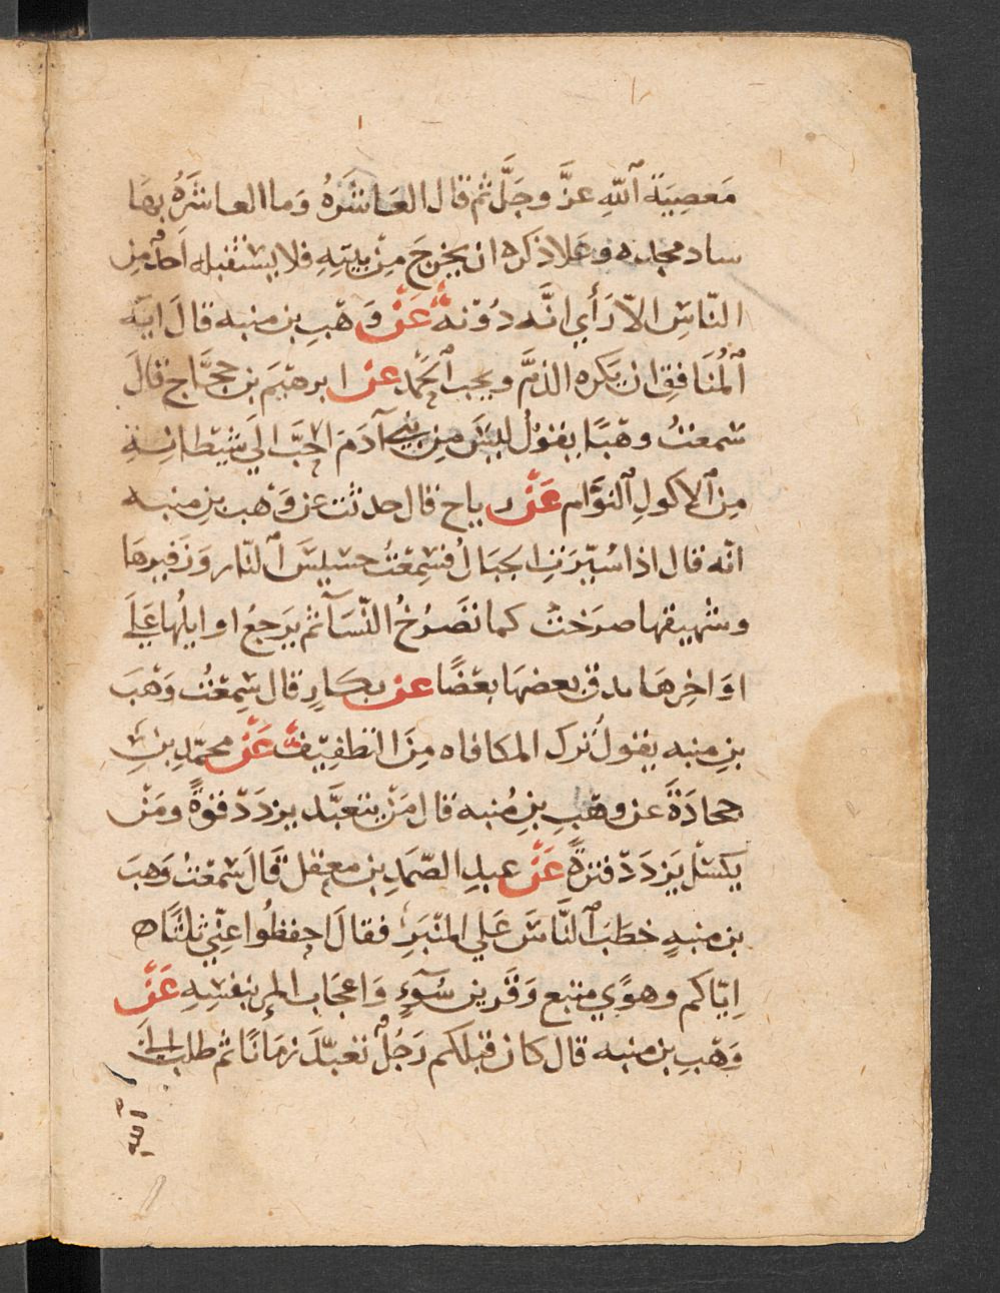 مَعصِيَة اللّهِ عزَّ وجَلَّ ثم قال العَاشرَةُ وَما العاشرَةُ بهَا
ساد مجده وعَلا ذكره ان يخرجَ مِنْ بيتِهِ فلا يستقبله اَحدٌ مِن
النّاسِ الاّ رَأي انَّه دُوْنهُ عَنْ وَهْبِ بن منبه قالَ ايَة
المُنَافقِ ان يَكره الذمَّ ويحب الحَمْد عن ابرهيَم بن حجَّاج قالَ
سَمعتُ وهبًا يقوُلُ ليسَ مِن بَني آدَمَ احَبَّ الَي شيْطانِهِ
مِنَ الاكولِ النوَّام عَنْ رياح قال حدثت عن وَهب بنِ منبه
انّه قال اذا سُيّرَتِ الجبَالُ فسَمِعْتُ حسيسَ النّار وَزفيرهَا
وشهيقها صرَخت كما تَصرُخُ النّسَآ ثم يَرجعُ اوايلُها عَلَي
اوَاخِرهَا يدق بعضهَا بعْضًا عن بكارٍ قال سَمِعْتُ وَهْبَ
بنِ منبه يقول تَرك المكافاه مِنَ التطفِيف عَنْ محمّدِ بنِ
جحادَةَ عن وهْبِ بنِ مُنبه قال مَنْ يتعبَّد يزدَدْ قوّةً ومَنْ
يكسَل يَزدَدْ فترَةً عَنْ عبدِ الصّمَدِ بن معقل قَالَ سَمعْتُ وَهْبَ
بن منبهٍ خطَبَ النَّاسَ عَلي المنْبَرِ فقالَ احفظُوا عنّي ثلثًا
اِيّاكم وهوًي متبع وَقَرين سُوٓءٍ وَاعجَاب المرِ بنفسِهِ عَنْ
وَهْبِ بن منبه قال كان قبْلكم رَجُلٌ تعَبّدَ زمَانًا ثم طلب الَى
اللّهِ